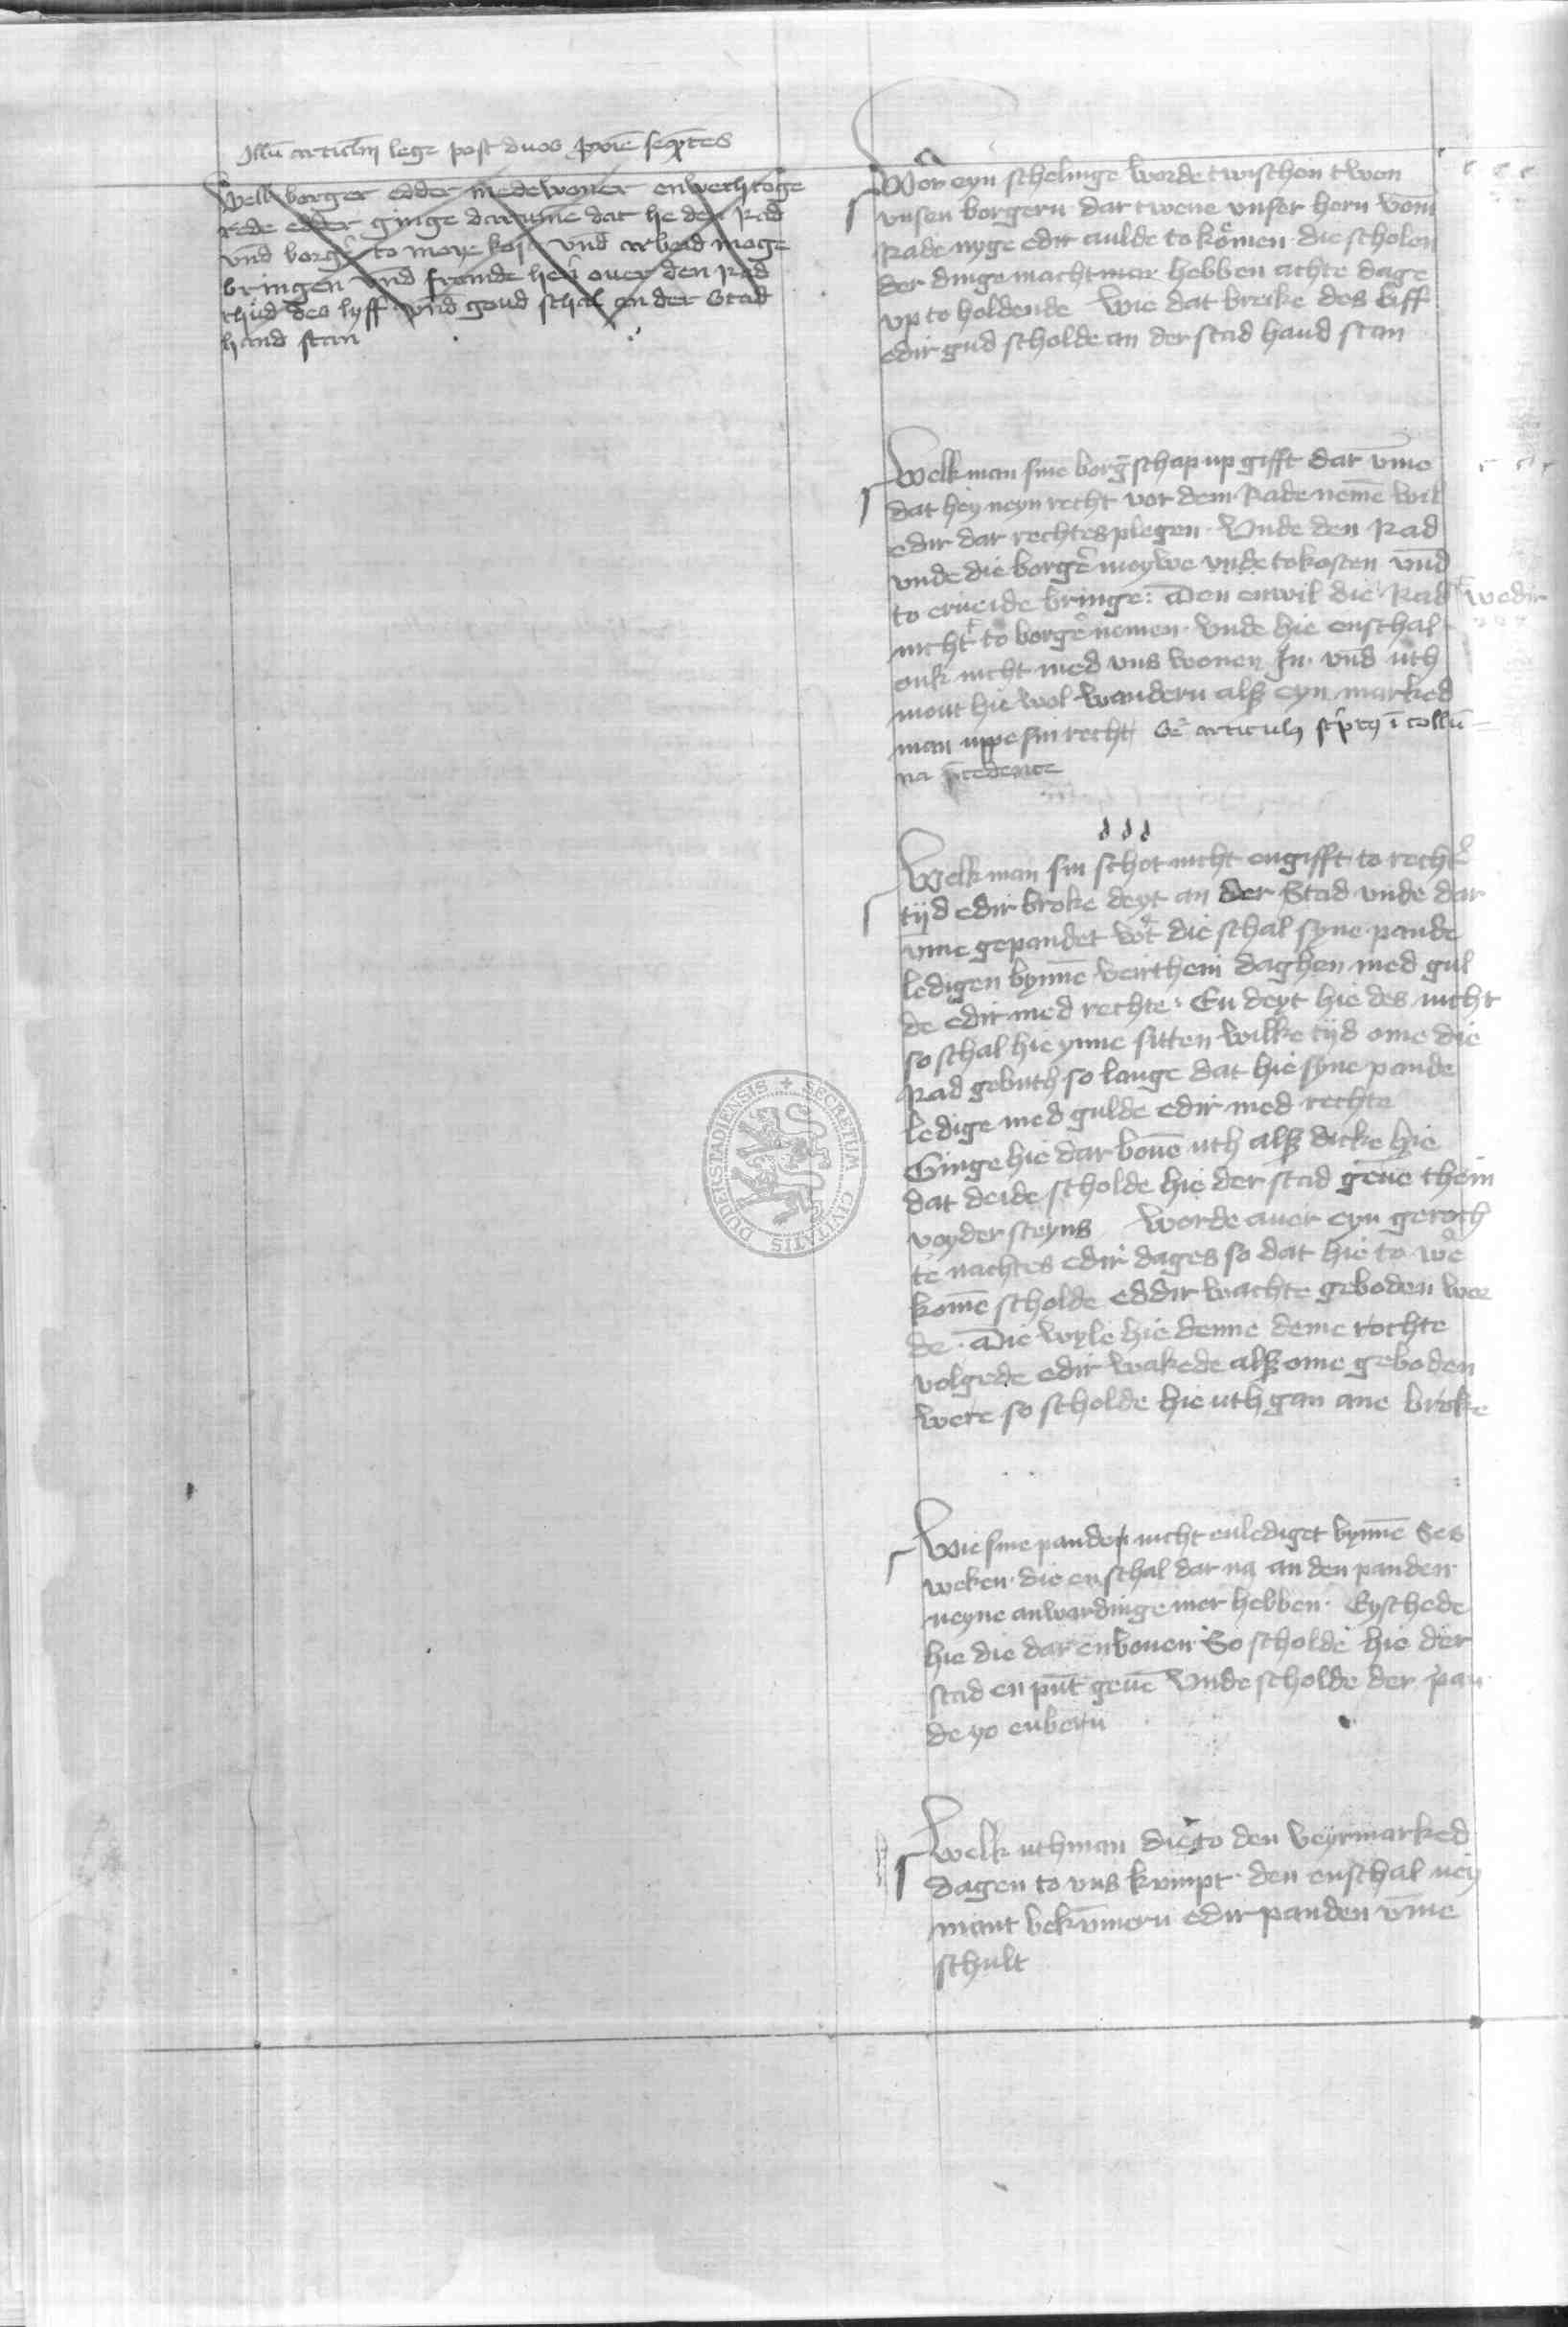 Illū articulū lege post duos proxīe seq̄ntes
Welk borger edder medewoner enwech toge
rede edder ginge darumme dat he den Rad
vnd borḡ to moye kost vnd arbeid moge
bringen vnd fromde hēn ouer den Rad
thud des lyff vnd goud schal an der Stad
hand stan
Wor eyn schelinge worde twischen twen
vnsen borgern dar twene vnser hern vom̄
Rade nyge edir aulde to kömen die scholen
der dinge macht mar hebben achte dage
vp to holdende Wie dat breike des liff
edir gud scholde an der stad hand stan
Welk man sine borḡschap up gifft dar vm̄e
dat hey neyn recht vor dem Rade nemē wil
edir dar rechtes plegen Vnde den Rad
vnde die borgē moywe vnde to kosten vnd̄
to erueide bringe: Den enwil die Rad
wedir
nicht to borgē nemen Vnde hie enschal
ouk nicht med vns wonen In vnd̄ uth
mout hie wol wandern alß eyn marked
man uppe sin recht articulꝰ sc̄ptꝰ ī collū
na p̄cedente
ddd
Welk man sin schot nicht engifft to recht̄
tijd edir broke deyt an der Stad vnde dar
vme gepandet wert die schal syne pande
ledigen bynnē veirthein daghen med gul
de edir med rechte En deyt hie des nicht
so schal hie ynne sitten wilke tijd ome die
Rad gebuth so lange dat hie syne pande
ledige med gulde edir med rechte
Ginge hie dar bouē uth alß dicke hie
dat deide scholde hie der stad geuē thein
voyder steyns Worde auer eyn geroch
te nachtes edir dages so dat hie to wē
komē scholde eddir wachte geboden wor
de Die wyle hie denne deme rochte
volgede edir wakede alß ome geboden
were so scholde hie uth gan ane broke
DUDERSTADIENSIS SECRETUM CIVITATIS
Wie sine panden nicht enlediget bynnē Ses
weken die enschal dar na an den panden
neyne anwardinge mer hebben Eyschede
hie die dar enbouen So scholde hie der
stad en pūt geuē Vnde scholde der pan
de yo enbern
Welk uthman die to den veyrmarked
dagen to vns kumpt den enschal ney
mant bekūmern edir panden vm̄e
schult